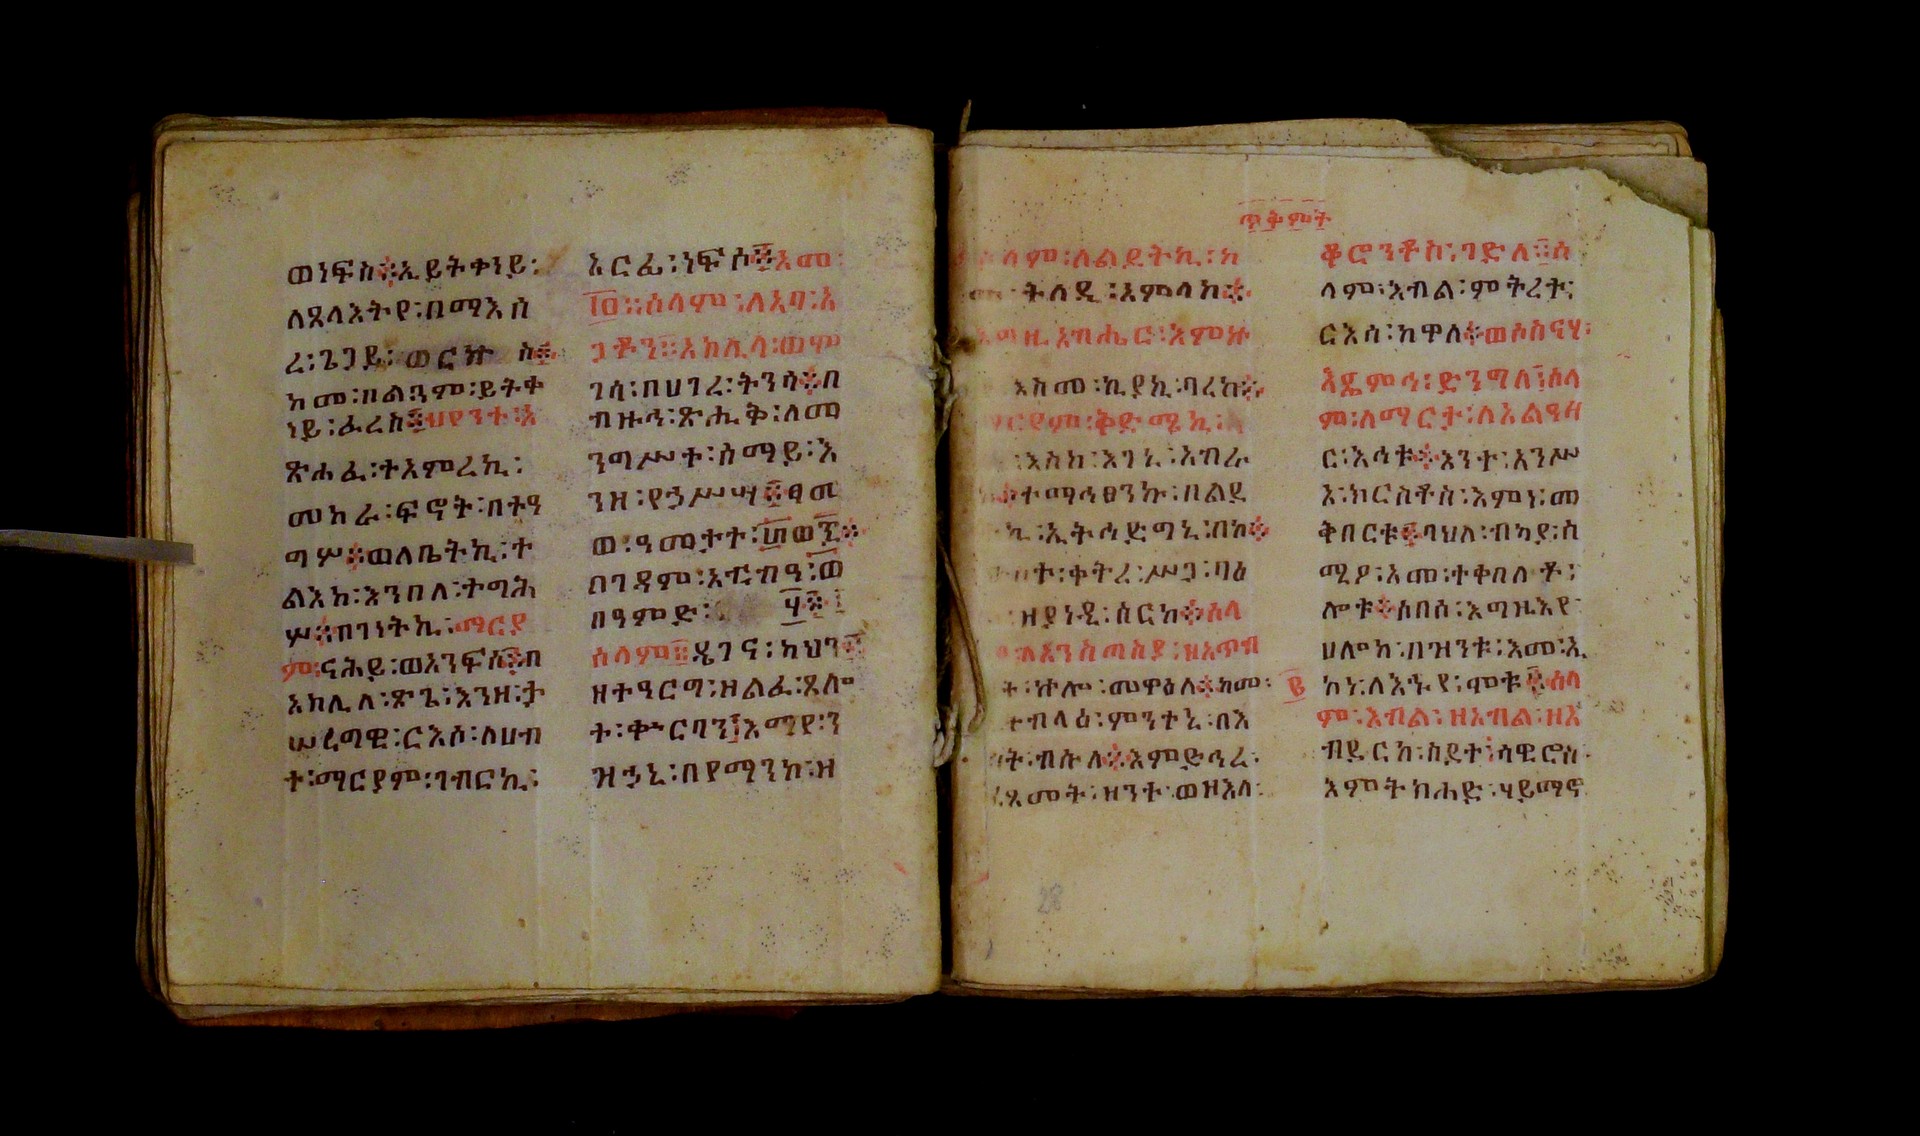 ወነፍስ፨ኢይትቀነይ፡
ለጸላእትየ፡በማእሰ
ረ፡ጌጋይ፡ወርኵስ፨
ከመ፡በልጓም፡ይትቀ
ነይ፡ፈረስ፨ህየንተ፡እ
ጽሐፈ፡ተአምረኪ፡
መከራ፡ፍኖት፡በተዓ
ግሦ፨ወለቤትኪ፡ተ
ልእከ፡እንበለ፡ተግሕ
ሦ፨በገነትኪ፡ማርያ
ም፡ናሕይ፡ወአንፍሶ፨በ
አክሊለ፡ጽጌ፡እንዘ፡ታ
ሠረግዊ፡ርእሶ፡ሰሀብ
ተ፡ማርያም፡ገብርኪ፡
አርፊ፡ነፍሶ፨አመ
፲፬፡ሰላም፡ለአባ፡አ
ጋቶን፡አክሊላ፡ወሞ
ገሳ፡በሀገረ፡ትንሳ፨በ
ብዙኅ፡ጽሒቅ፡ለመ
ንግሥተ፡ሰማይ፡እ
ንዘ፡የኃሥሣ፨ፃመ
ወ፡ዓመታተ፡፴ወ፮፨
በገዳም፡አዺብዓ፡ወ
በዓምድ፡፶፨
ሰላም፡ዴገና፡ካህን፨
ዘተዓርግ፡ዘልፈ፡ጸሎ
ተ፡ቍርባን፡እማየ፡ን
ዝኃኒ፡በየማንከ፡ዝ
ጥቅምት
ሰላም፡ለልደትኪ፡ከ
ትሰዲ፡እምላክ፨
እግዚአብሔር፡እምኵ
እስመ፡ኪያኪ፡ባረከ፨
ማርያም፡ቅድሜኪ፡
እስከ፡እገኒ፡አብራ
ተማኅፀንኩ፡በልደ
ኪ፡ኢትኅድግኒ፡በከ፨
ቀትረ፡ሥጋ፡ባዕ
ዝያነዲ፡ሰርከ፨ሰላ
ለአንስጣስያ፡ዘአጥብ
ኵሎ፡መዋዕለ፨ከመ፡
ትብላዕ፡ምንተኒ፡በእ
ት፡ብሱለ፨እምድኅረ፡
ጸመት፡ዘንተ፡ወዝእለ፡
ቆሮንቶስ፡ገድለ፨ሰ
ላም፡አብል፡ምትረት፡
ርእሰ፡ከዋለ፨ወሶስናሃ፡
እጼምኅ፡ድንግለ፡ሰላ
ም፡ለማርታ፡ለአልዓዛ
ር፡እኅቱ፨እንተ፡አንሥ
እ፡ክርስቶስ፡እምነ፡መ
ቅበርቱ፨ባህለ፡ብካያ፡ስ
ሚዖ፡እመ፡ተቀበለቶ፡
ሎቱ፨ሶበሰ፡እግዚእየ
ሀሎከ፡በዝንቱ፡እመ፡ኢ
ኮነ፡ለእኁየ፡ሞቱ፨ሰላ
ም፡እብል፡ዘአብል፡ዘአ
ብይርከ፡ስደተ፡ሳዊሮስ
እምትክሐድ፡ሃይማኖ